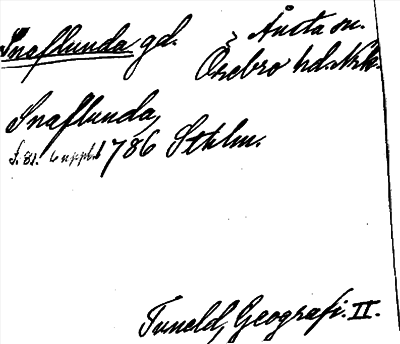 Snaflunda gd. Ånsta sn.
Örebro hd. Nrk.
Snaflunda,
s. 81. 6 uppl. 1786 Sthlm.
Tuneld, Geografi. II.